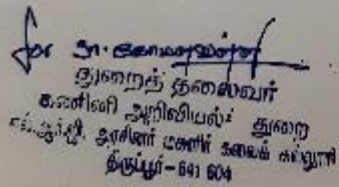 for
துறைத் தலைவர்
கணினி அறிவியல் துறை
எல்.ஆர்.ஜி. அரசினர் மகளிர் கலைக் கல்லூரி
திருப்பூர் - 641 604